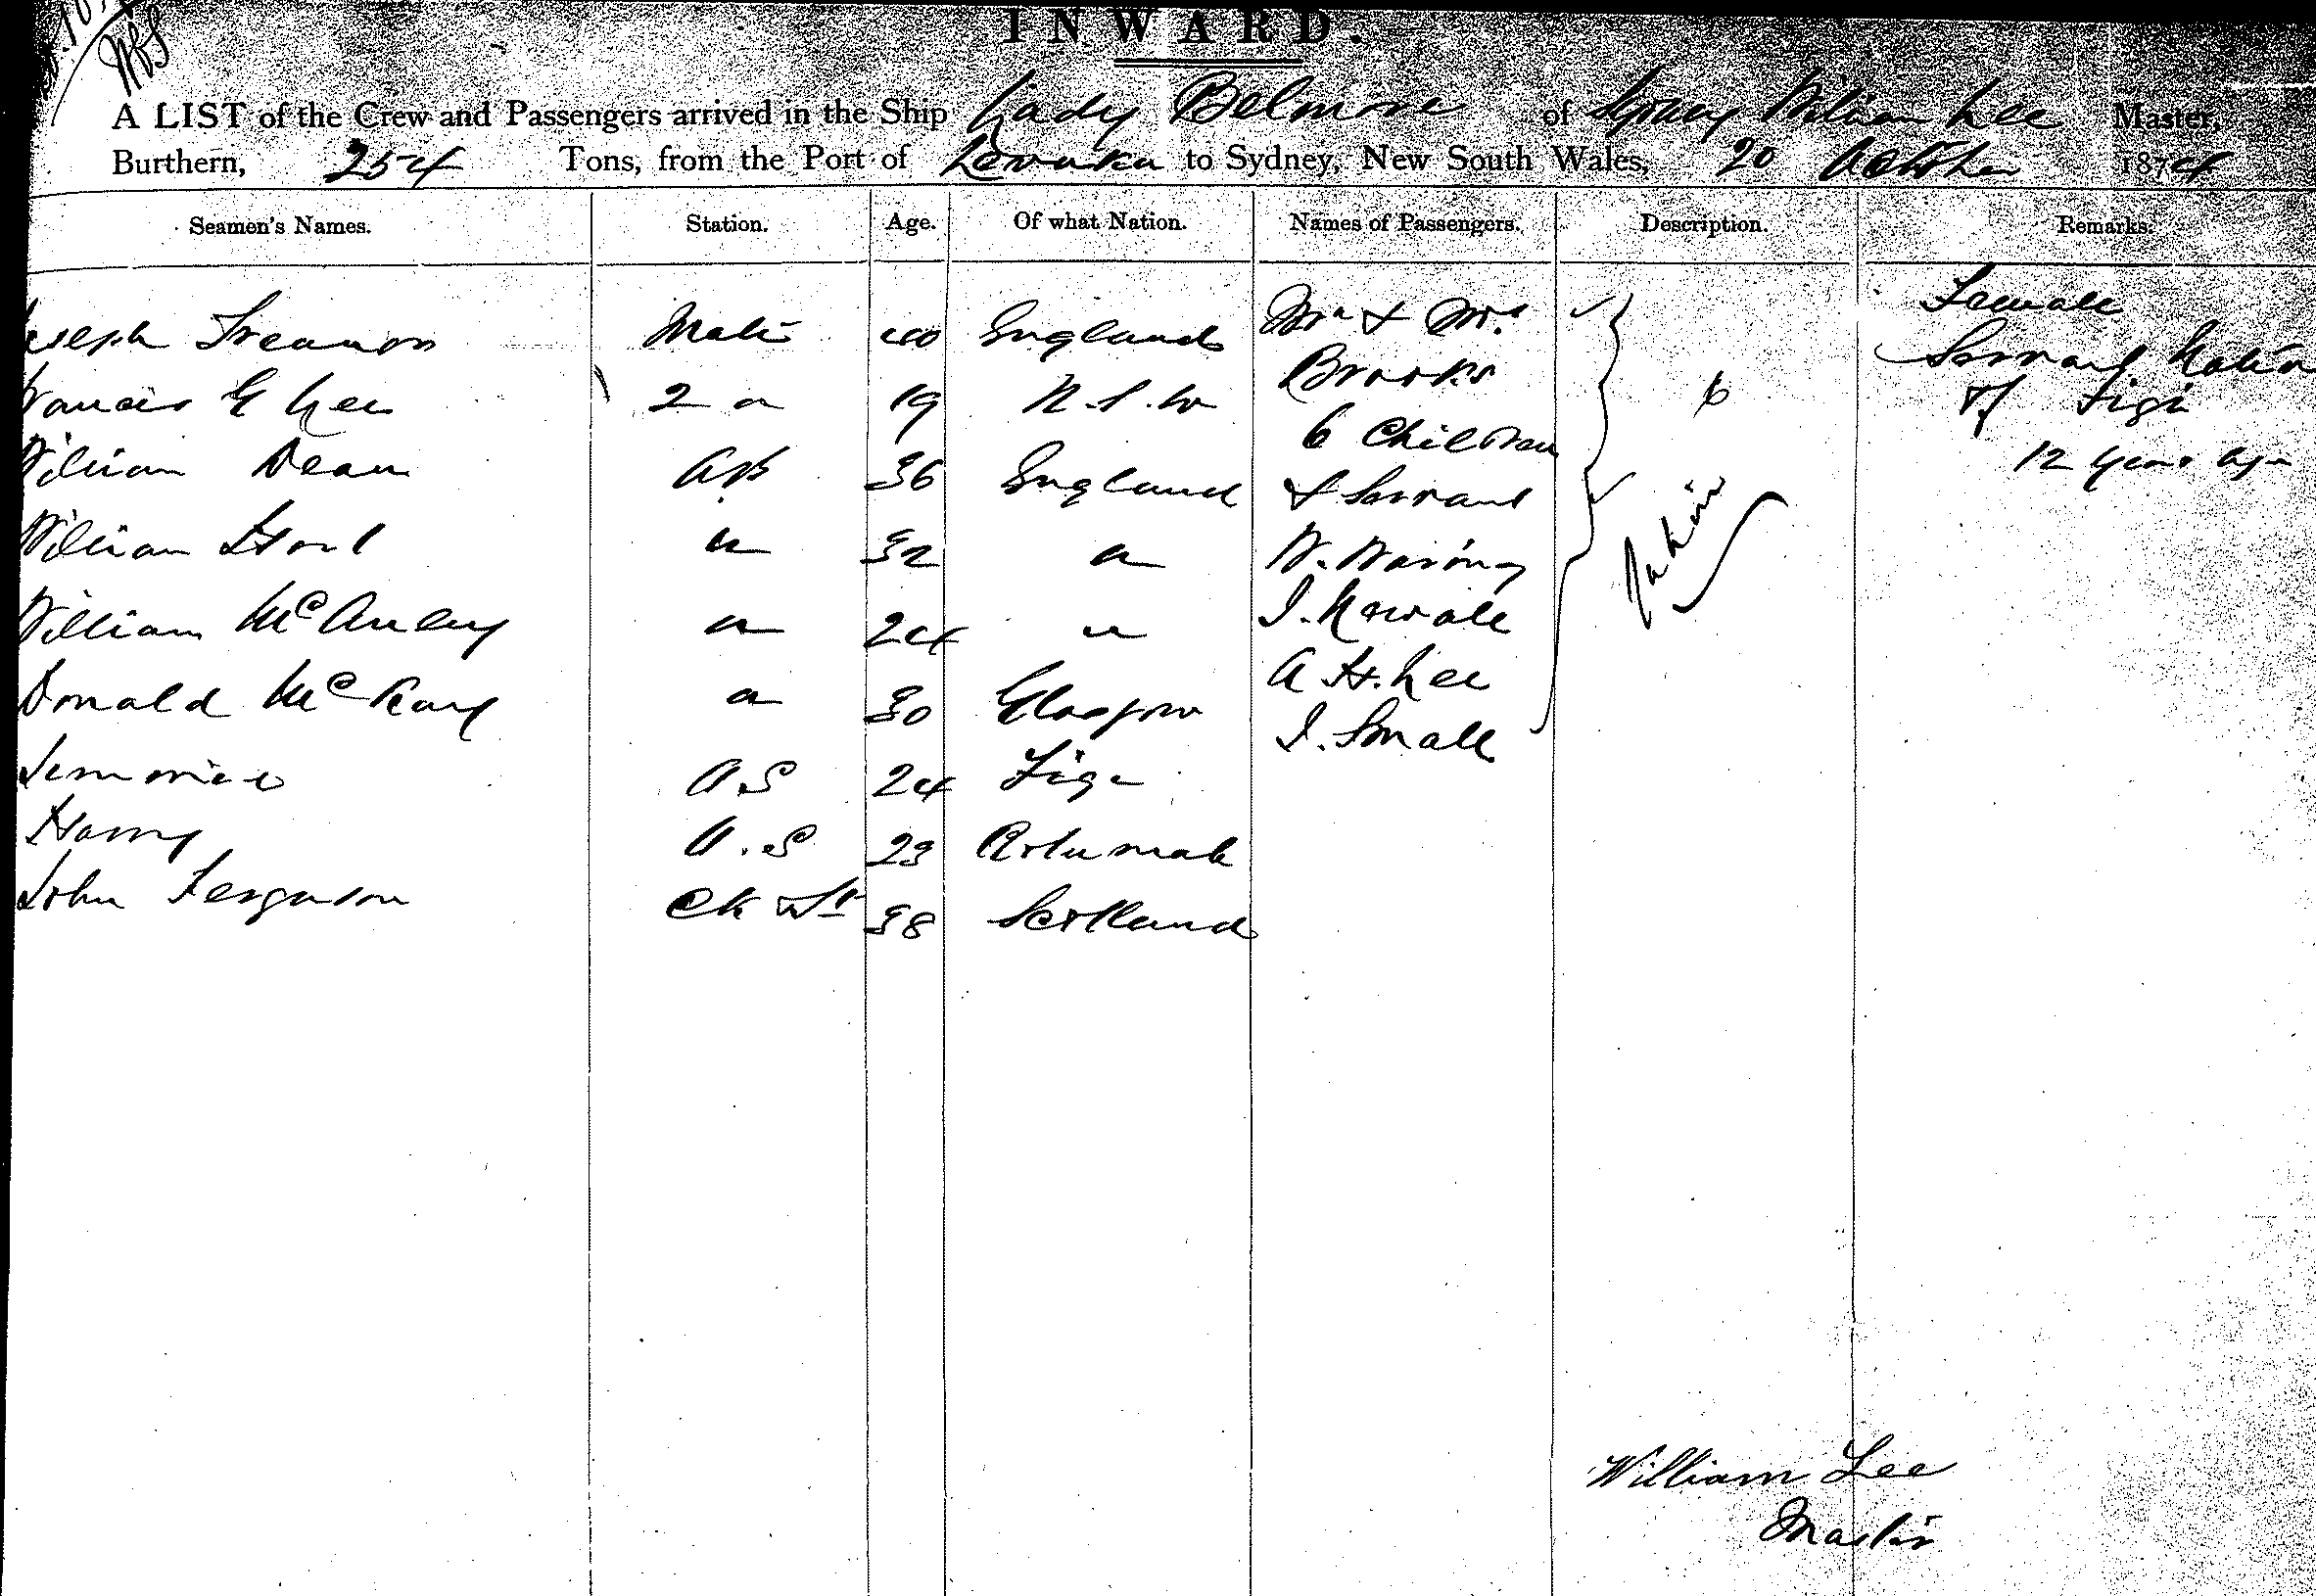 INWARD.
A LIST of the Crew and Passengers arrived in the Ship Lady Belmore of Sydney William Lee Master,
Burthern, 254 Tons, from the Port of Levuka to Sydney, New South Wales, 20 October 1874
Seamen's Names. Station. Age. Of what Nation. Names of Passengers. Description. Remarks.
Joseph Mate 40 England Mr & Mrs Female
Brooks Servant Native
Francis G Lee 2 " 19 N.S.W 6 of Fiji
6 Children
William Dean AB 36 England & Servant 12 years age
William " 32 " W. Waring Cabin
William McAuley " 24 " J. Newall
Donald McKay " 30 Glasgow A H. Lee
J. Small
AS 24 Fiji
Harry A.S 23 Rotumah
John Ferguson Ck & St 38 Scotland
William Lee
Master